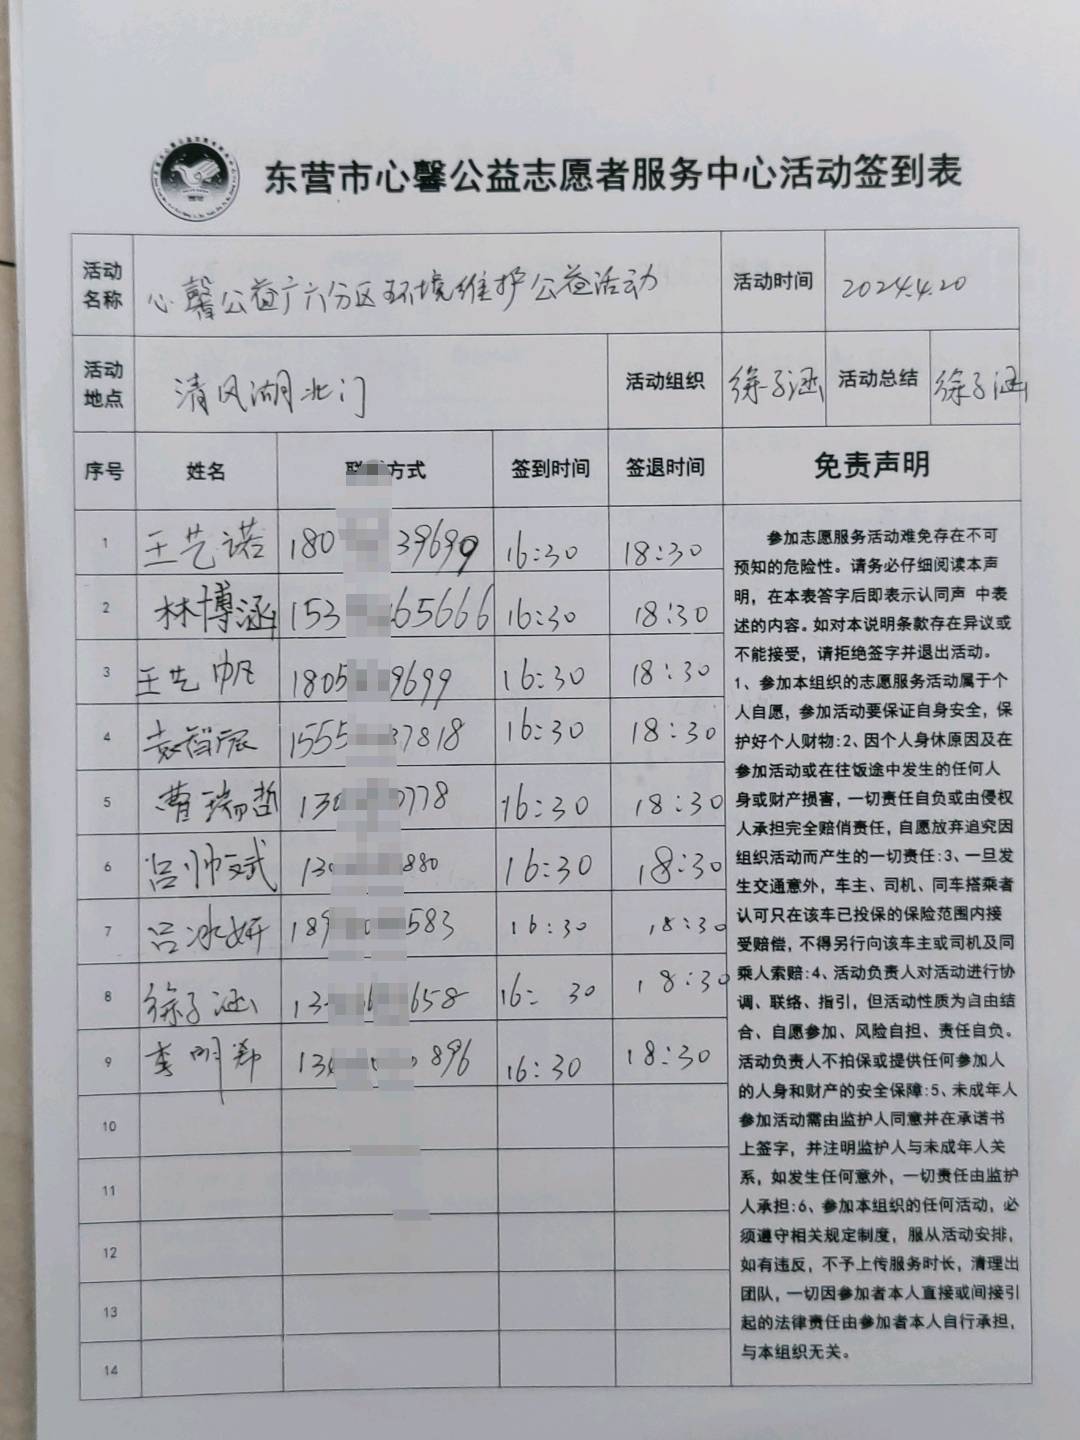 东营市心馨公益志愿者服务中心活动签到表
活动名称 心馨公益广六分区环境维护公益活动 活动时间 2024.4.20
活动地点 清风湖北门 活动组织 徐子涵 活动总结 徐子涵
序号 姓名 方式 签到时间 签退时间 免责声明
1 王艺诺 180 39699 16:30 18:30
2 林博涵 153 65666 16:30 18:30
3 王艺帆 1805 9699 16:30 18:30
4 袁智宸 1555 37818 16:30 18:30
5 曹瑞哲 130 0778 16:30 18:30
6 吕帅斌 130 880 16:30 18:30
7 吕冰妍 189 583 16:30 18:30
8 徐子涵 13 658 16: 30 18:30
9 李明 13 896 16:30 18:30
10
11
12
13
14
参加志愿服务活动难免存在不可
预知的危险性。请务必仔细阅读本声
明，在本表答字后即表示认同声 中表
述的内容。如对本说明条款存在异议或
不能接受，请拒绝签字并退出活动。
1、参加本组织的志愿服务活动属于个
人自愿，参加活动要保证自身安全，保
护好个人财物:2、因个人身休原因及在
参加活动或在往饭途中发生的任何人
身或财产损害，一切责任自负或由侵权
人承担完全赔俏责任，自愿放弃追究因
组织活动而产生的一切责任:3、一旦发
生交通意外，车主、司机、同车搭乘者
认可只在该车已投保的保险范围内接
受赔偿，不得另行向该车主或司机及同
乘人索赔:4、活动负责人对活动进行协
调、联络、指引，但活动性质为自由结
合、自愿参加、风险自担、责任自负。
活动负责人不拍保或提供任何参加人
的人身和财产的安全保障:5、未成年人
参加活动需由监护人同意并在承诺书
上签字，并注明监护人与未成年人关
系，如发生任何意外，一切责任由监护
人承担:6、参加本组织的任何活动，必
须遵守相关规定制度，服从活动安排，
如有违反，不予上传服务时长，清理出
团队，一切因参加者本人直接或间接引
起的法律责任由参加者本人自行承担，
与本组织无关。